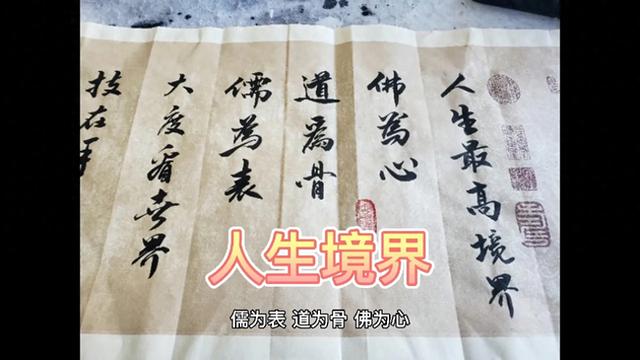 人生最高境界
佛為心
道為骨
儒為表
大度看世界
技在手
人生境界
儒为表 道为骨 佛为心